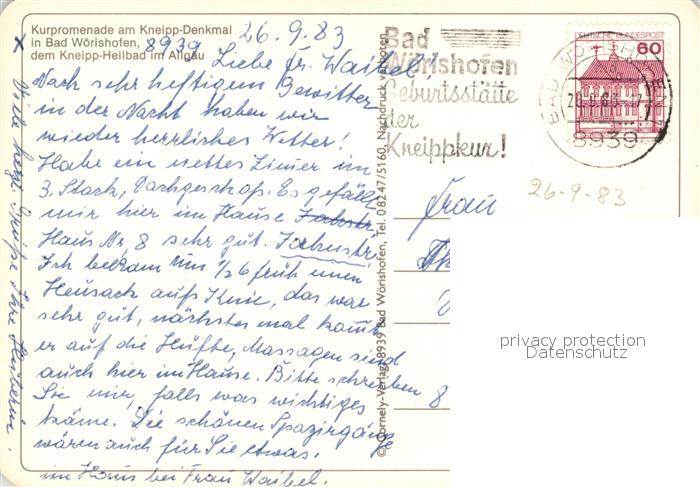 Kurpromenade am Kneipp-Denkmal
in Bad Wörishofen,
dem Kneipp-Heilbad im Allgäu
26.9.83
8939
Liebe Fr. Waibel!
Nach sehr heftigem Gewitter
in der Nacht haben wir
wieder herrliches Wetter!
Habe ein nettes Zimer im
3. Stock, Dachgeschoß. Es gefällt
mir hier im Hause
Haus Nr. 8 sehr gut.
Ich bekam um 1/2 6 früh einen
Heusack aufs Knie, das war
sehr gut, nächstes mal kommt
er auf die Hüfte, Massagen sind
auch hier im Hause. Bitte schreiben
Sie mir, falls was wichtiges
käme. Die schönen Spaziergänge
wären auch für Sie etwas.
im Haus bei Frau Waibel.
x Viele herzl. Grüße Ihre
© Cornely-Verlag, 8939 Bad Wörishofen, Tel. 08247/5160, Nachdruck verboten
Bad
Wörishofen
Geburtsstätte
der
Kneippkur!
DEUTSCHE BUNDESPOST
60
BAD WÖRISHOFEN
8939
26-9-83
Frau
8
privacy protection
Datenschutz